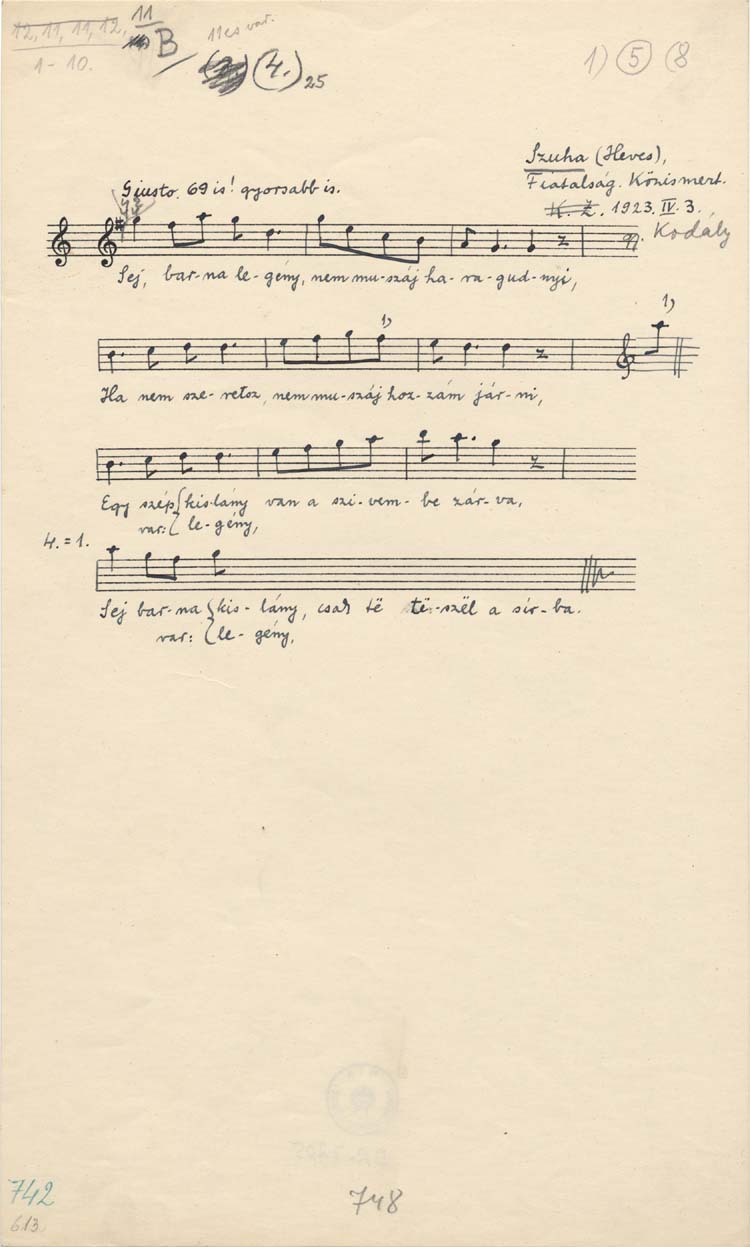 12, 11, 11, 12, 11
1-10.
B
11es var.
(4.) 25
1) 5 (8
Szuha (Heves),
Fiatalság. Közismert.
K. Z. 1923. IV. 3.
Kodály
Giusto. 69 is! gyorsabb is.
Sej, bar-na le-gény, nem mu-száj ha-ra-gud-nyi,
1)
1)
Ha nem sze-retsz, nem mu-száj hoz-zám jár-ni,
Egy szép kis-lány van a szi-vem-be zár-va,
var: le-gény,
4. = 1.
Sej bar-na kis-lány, csak të të-szël a sír-ba.
var: le-gény,
742
613
748